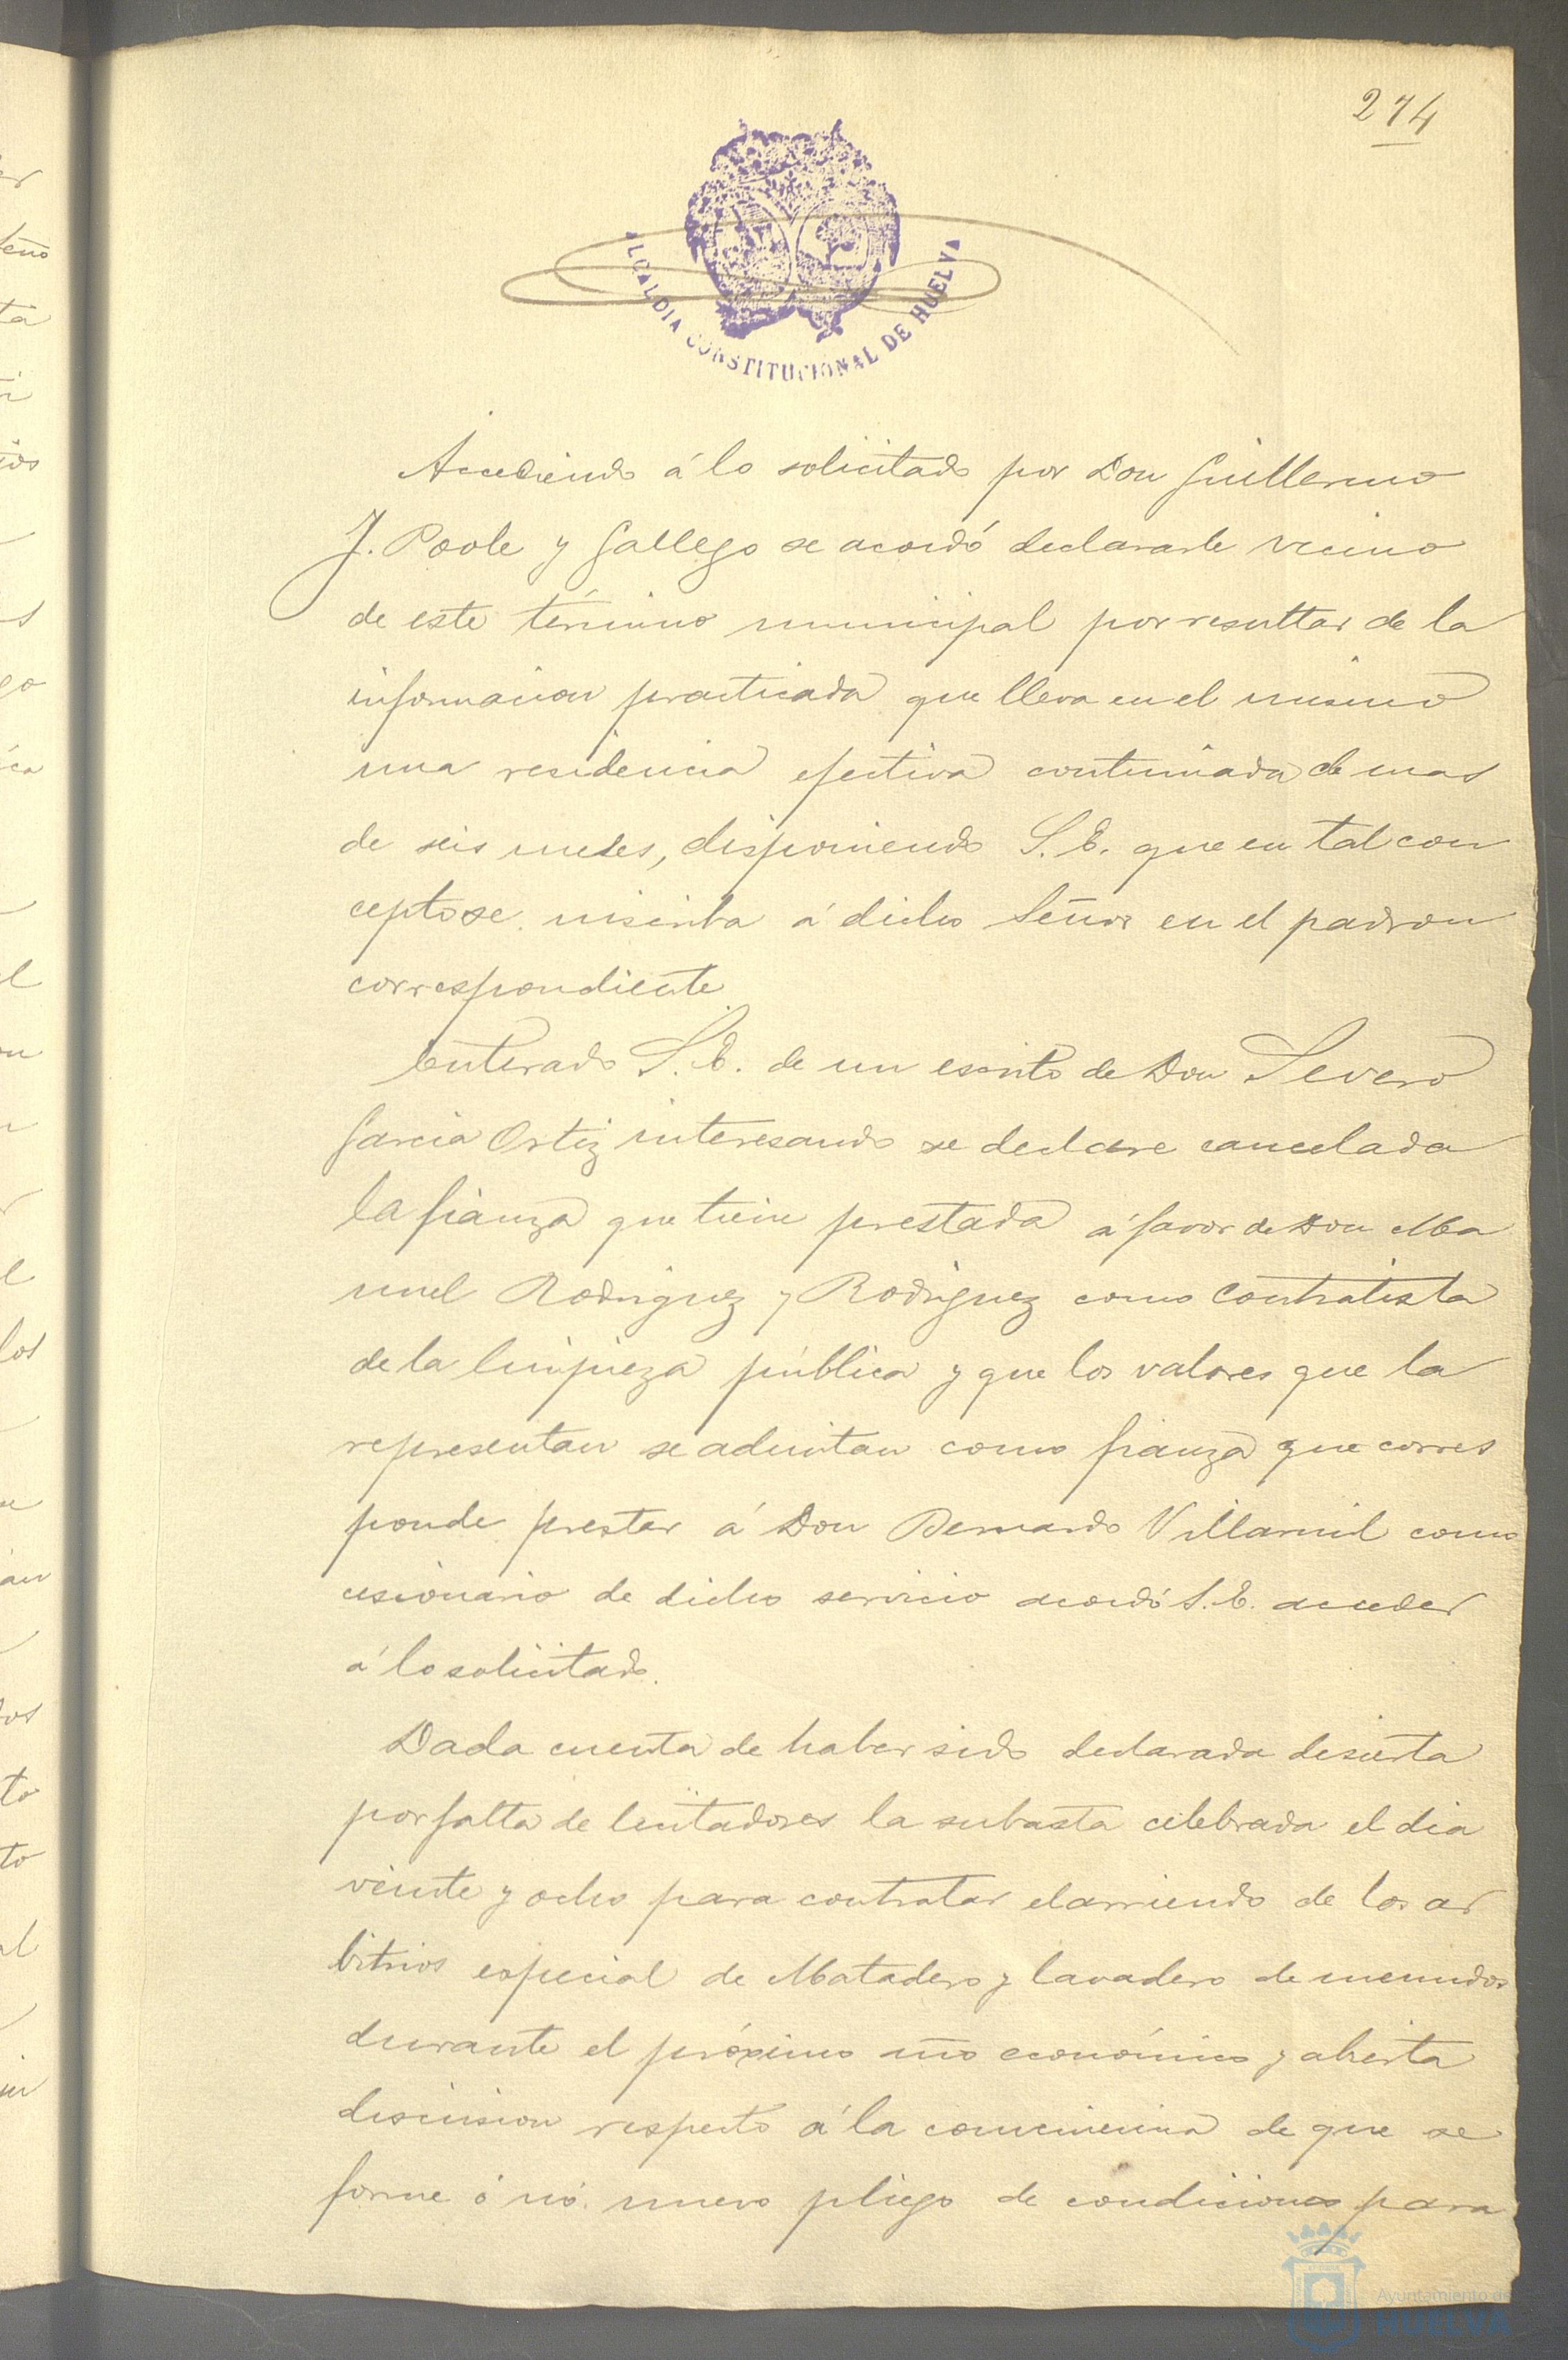 274
ALCALDIA CONSTITUCIONAL DE HUELVA
Accediendo á lo solicitado por Don Guillermo
J. Poole y Gallego se acordó declararle vecino
de este término municipal por resultar de la
informacion practicada que lleva en el mismo
una residencia efectiva continuada de mas
de seis meses, disponiendo S. E. que en tal con
cepto se inscriba á dicho Señor en el padron
correspondiente.
Enterado S. E. de un escrito de Don Severo
Garcia Ortiz interesando se declare cancelada
la fianza que tiene prestada á favor de Don Ma
nuel Rodriguez y Rodriguez como contratista
de la limpieza pública y que los valores que la
representan se admitan como fianza que corres
ponde prestar á Don Bernardo Villamil como
cesionario de dicho servicio acordó S. E. acceder
á lo solicitado.
Dada cuenta de haber sido declarada desierta
por falta de licitadores la subasta celebrada el dia
veinte y ocho para contratar el arriendo de los ar
bitrios especial de Matadero y lavadero de menudos
durante el próximo año económico y abierta
discusion respecto á la conveniencia de que se
forme ó nó nuevo pliego de condiciones para
Ayuntamiento de
HUELVA